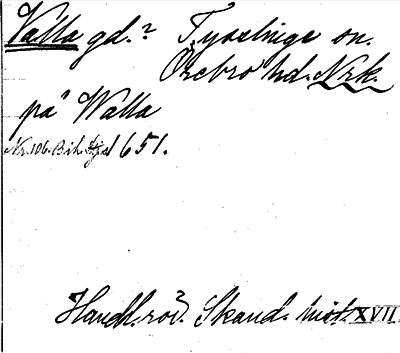 Valla gd.? Tysslinge sn.
Örebro hd. Nrk.
på Walla
Nr. 106. Bih. 651.
Handl. rör. Skand. hist. XVII